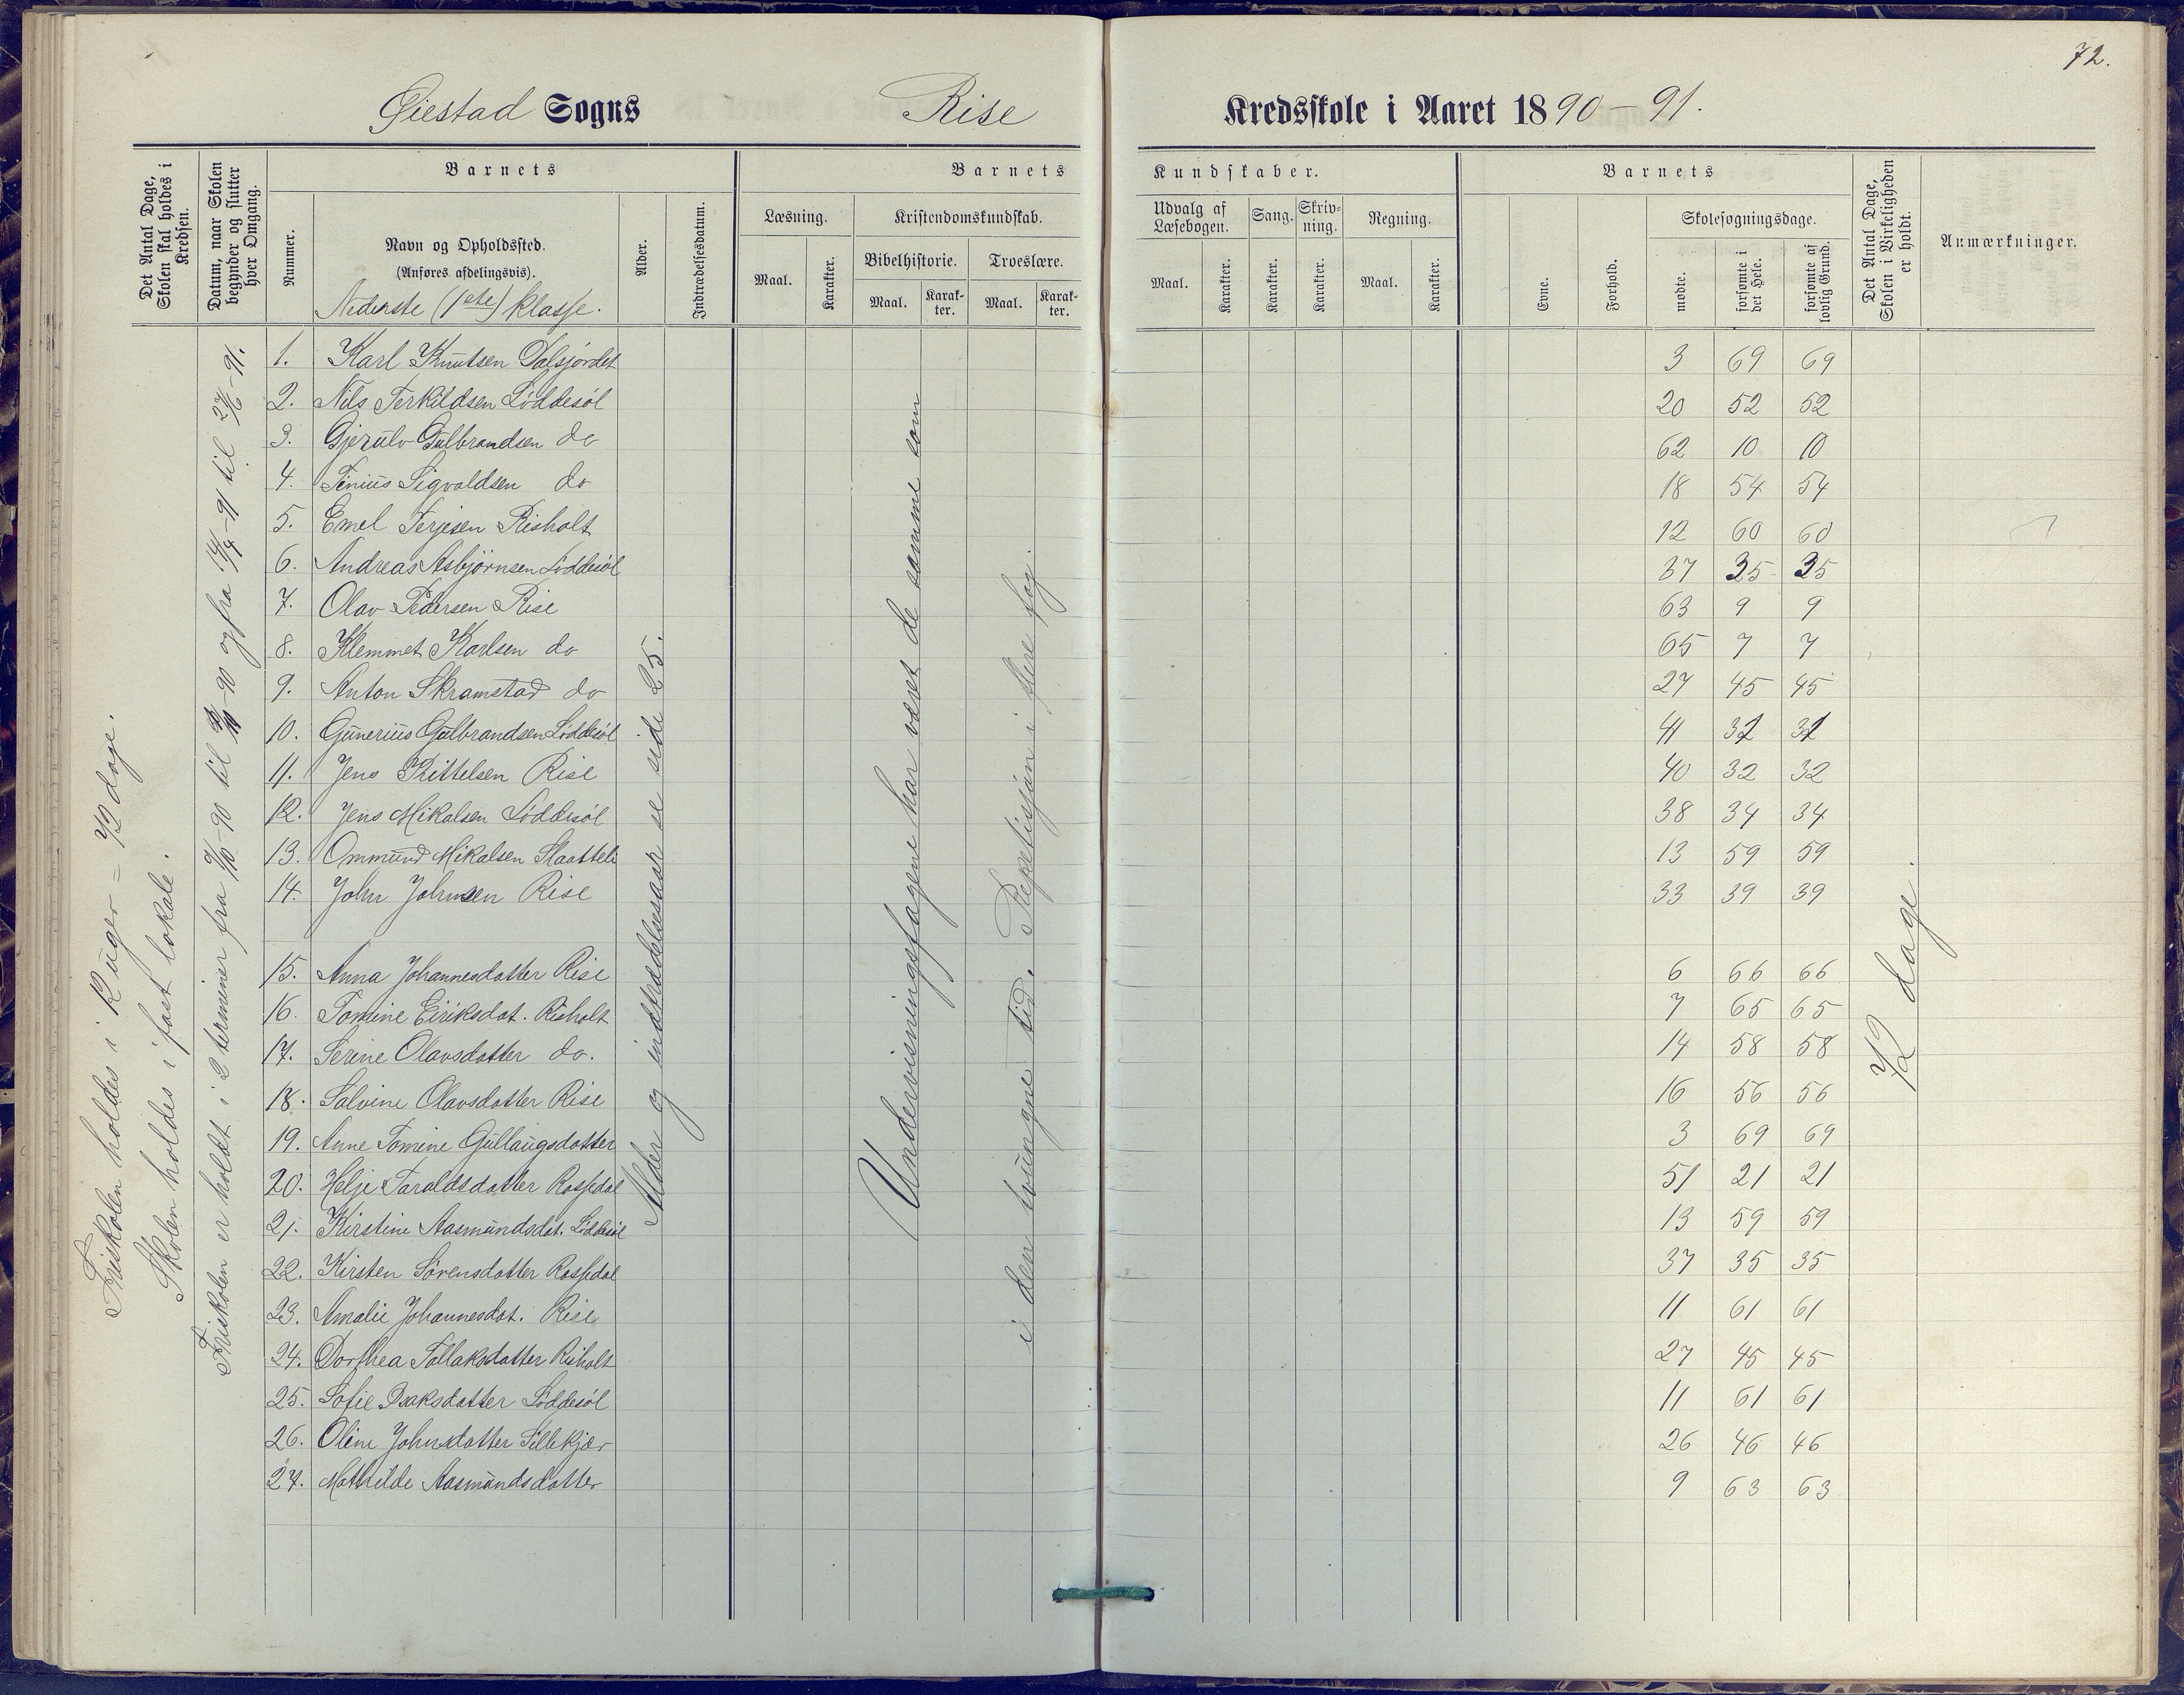 72.
Øiestad Sogns Rise Kredsskole i Aaret 1890-91.
Det Antal Dage, Skolen skal holdes i Kredsen.
Datum, naar Skolen begynder og slutter hver Omgang.
Barnets
Nummer.
Navn og Opholdssted.
(Anføres afdelingsvis).
Nederste (1ste) klasse.
Alder.
Indtrædelsesdatum.
Barnets Kundskaber.
Læsning.
Maal.
Karakter.
Kristendomskundskab.
Bibelhistorie.
Maal.
Karakter.
Troeslære.
Maal.
Karakter.
Udvalg af Læsebogen.
Maal.
Karakter.
Sang.
Karakter.
Skrivning.
Karakter.
Regning.
Maal.
Karakter.
Barnets
Evne.
Forhold.
Skolesøgningsdage.
mødte.
forsømte i det Hele.
forsømte af lovlig Grund.
Det Antal Dage, Skolen i Virkeligheden er holdt.
Anmærkninger.
Friskolen holdes i 12 uger = 72 dage.
Skolen holdes i fast lokale.
Friskolen er holdt i 2 terminer fra til og fra 14/4-91 til 27/6-91.
1. Karl Knutsen Dalsjordet 3 69 69
2. Nils Terkildsen Löddesöl 20 52 52
3. Gjerulv Gulbrandsen do 62 10 10
4. Tinius Sigvaldsen do 18 54 54
5. Emel Terjesen Risholt 12 60 60
6. Andreas Asbjörnsen Löddesöl 37 35 35
7. Olav Pedersen Rise 63 9 9
8. Klemmet Karlsen do 65 7 7
9. Anton Skramstad do 27 45 45
10. Gunerius Gulbrandsen Löddesöl 41 31 31
11. Jens Kittelsen Rise 40 32 32
12. Jens Mikalsen Löddesöl 38 34 34
13. Ommund Mikalsen Slaatteli 13 59 59
14. John Johnsen Rise 33 39 39
15. Anna Johannesdatter Rise 6 66 66
16. Tomine Eiriksdat. Risholt 7 65 65
17. Serine Olavsdatter do. 14 58 58
18. Salvine Olavsdatter Rise 16 56 56
19. Anne Tomine Gullaugsdatter 3 69 69
20. Helje Taraldsdatter Rossedal 51 21 21
21. Kirstine Aasmundsdat. Löddesöl 13 59 59
22. Kirsten Sörensdatter Rossedal 37 35 35
23. Amalie Johannesdat. Rise 11 61 61
24. Dorthea Tallaksdatter Risholt 27 45 45
25. Sofie Isaksdatter Löddesöl 11 61 61
26. Oline Johnsdatter Lillekjær 26 46 46
27. Mathilde Aasmundsdatter 9 63 63
Alder og indtrædelsesaar se side 25.
Undervisningsfagene har været de samme som
i den tvungne tid. Repetisjon i flere fag.
72 dage.